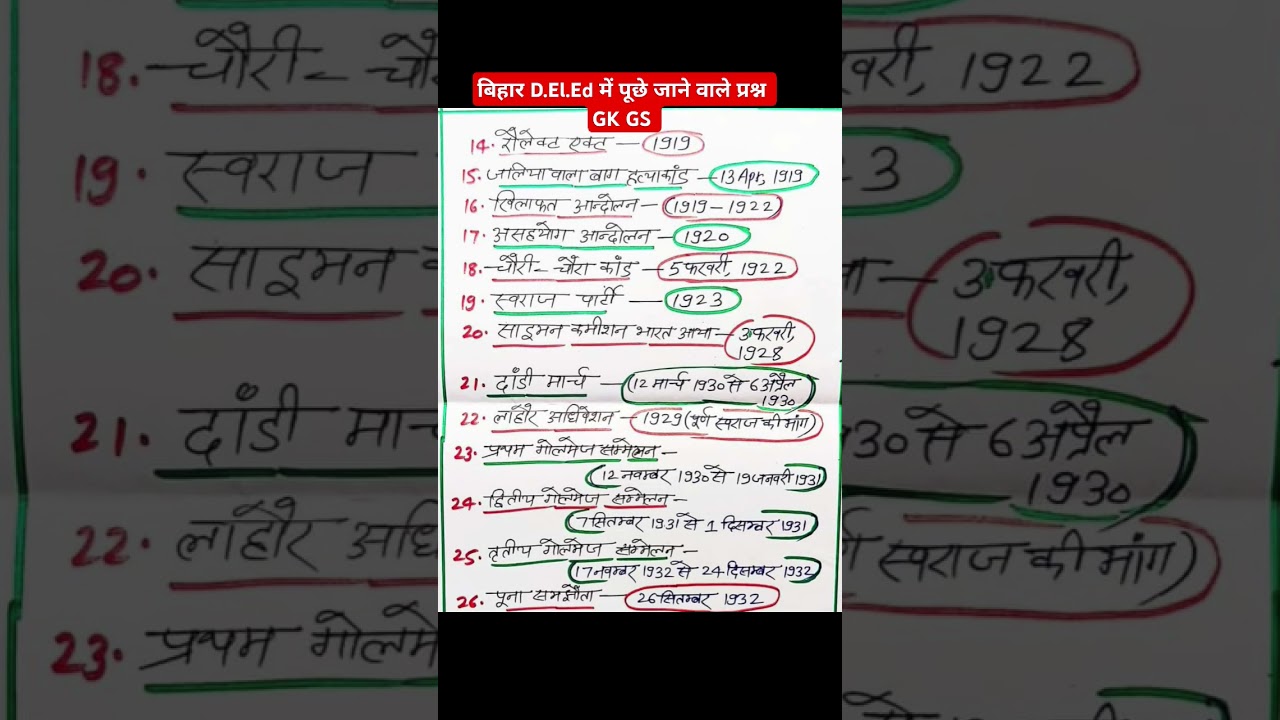 बिहार D.El.Ed में पूछे जाने वाले प्रश्न
GK GS
14. रौलेक्ट एक्ट — 1919
15. जालियावाला बाग हत्याकांड — 13 Apr, 1919
16. खिलाफत आन्दोलन — (1919 – 1922)
17. असहयोग आन्दोलन — 1920
18. चौरी – चौरा कांड — 5 फरवरी, 1922
19. स्वराज पार्टी — 1923
20. साइमन कमीशन भारत आया — 3 फरवरी,
1928
21. दांडी मार्च — (12 मार्च 1930 से 6 अप्रैल
1930
22. लाहौर अधिवेशन — 1929 (पूर्ण स्वराज की मांग)
23. प्रथम गोलमेज सम्मेलन –
12 नवम्बर 1930 से 19 जनवरी 1931
24. द्वितीय गोलमेज सम्मेलन –
7 सितम्बर 1931 से 1 दिसम्बर 1931
25. तृतीय गोलमेज सम्मेलन –
17 नवम्बर 1932 से 24 दिसम्बर 1932
26. पूना समझौता — 26 सितम्बर 1932
18. चौरी – चौ
वरी, 1922
19. स्वराज
3
20. साइमन
3 फरवरी,
1928
21. दांडी मार्च
30 से 6 अप्रैल
1930
22. लाहौर अधि
स्वराज की मांग)
23. प्रथम गोलमे